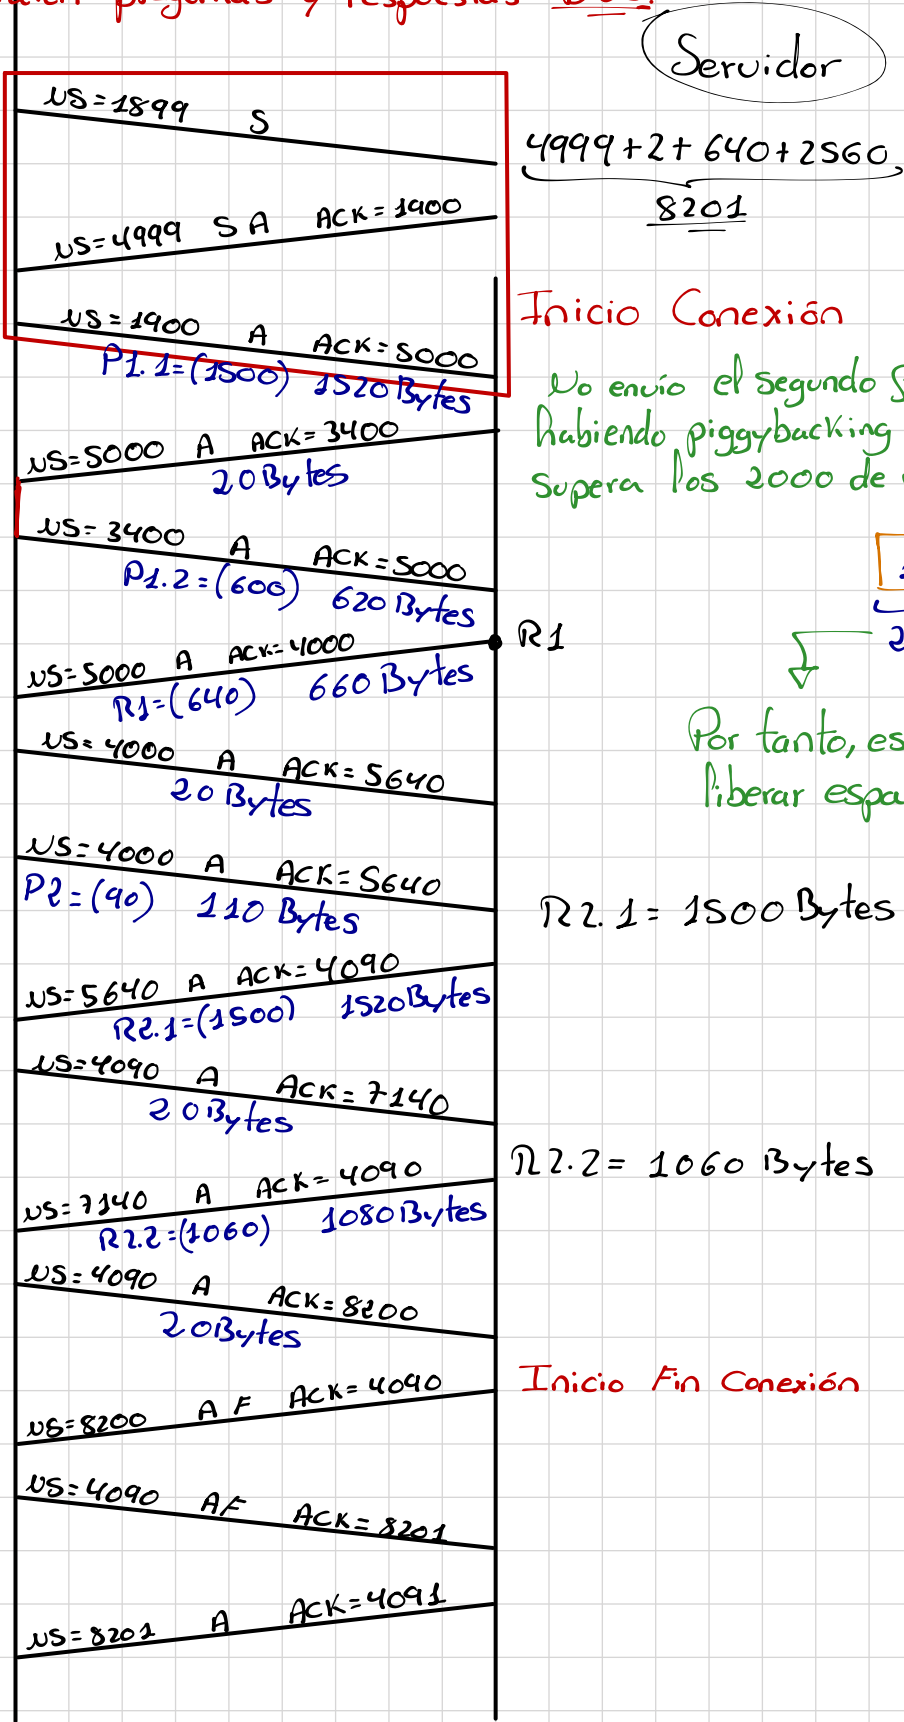 y
Servidor
NS=1899 S
4999+2+640+2560
8201
NS=4999 S A ACK=1900
Inicio Conexión
NS=1900 A ACK=5000
P1.1=(1500) 1520 Bytes
No envío el segundo S
habiendo piggybacking
supera los 2000 de
NS=5000 A ACK=3400
20 Bytes
NS=3400 A ACK=5000
P1.2=(600) 620 Bytes
R1
NS=5000 A ACK=4000
R1=(640) 660 Bytes
2
Por tanto, es
liberar espa
NS=4000 A ACK=5640
20 Bytes
NS=4000 A ACK=5640
P2=(90) 110 Bytes
R2.1=1500 Bytes
NS=5640 A ACK=4090
R2.1=(1500) 1520 Bytes
NS=4090 A ACK=7140
20 Bytes
R2.2=1060 Bytes
NS=7140 A ACK=4090
R2.2=(1060) 1080 Bytes
NS=4090 A ACK=8200
20 Bytes
Inicio Fin Conexión
NS=8200 A F ACK=4090
NS=4090 AF ACK=8201
NS=8201 A ACK=4091